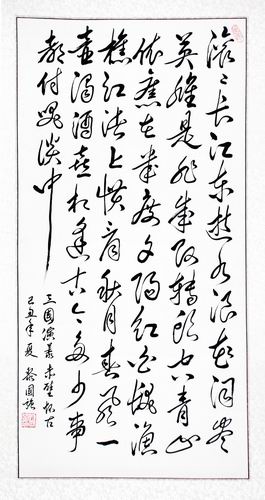 滚〻长江东逝水浪花淘尽
英雄是非成败转头空青山
依旧在几度夕阳红白发渔
樵江渚上惯看秋月春风一
壶浊酒喜相逢古今多少事
都付笑谈中
三国演义赤壁怀古
己丑年夏